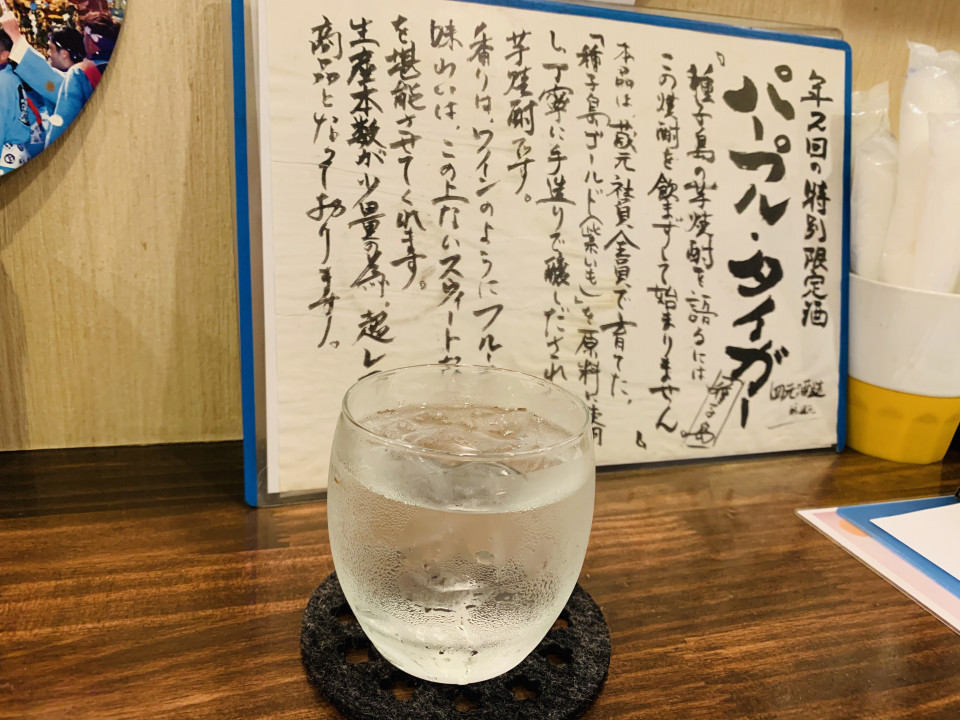 年2回の特別限定酒
パープル・タイガー
四元酒造
種子島
『種子島の芋焼酎を語るには
この焼酎を飲まずして始まりません』
本品は、蔵元社員全員で育てた、
「種子島ゴールド(紫いも)」を原料に使用
し、丁寧に手造りで醸しだされ
芋焼酎です。
香りは、ワインのようにフルー
味わいは、この上ないスウィートな
を堪能させてくれます。
生産本数が少量の為、超レ
商品となっております。